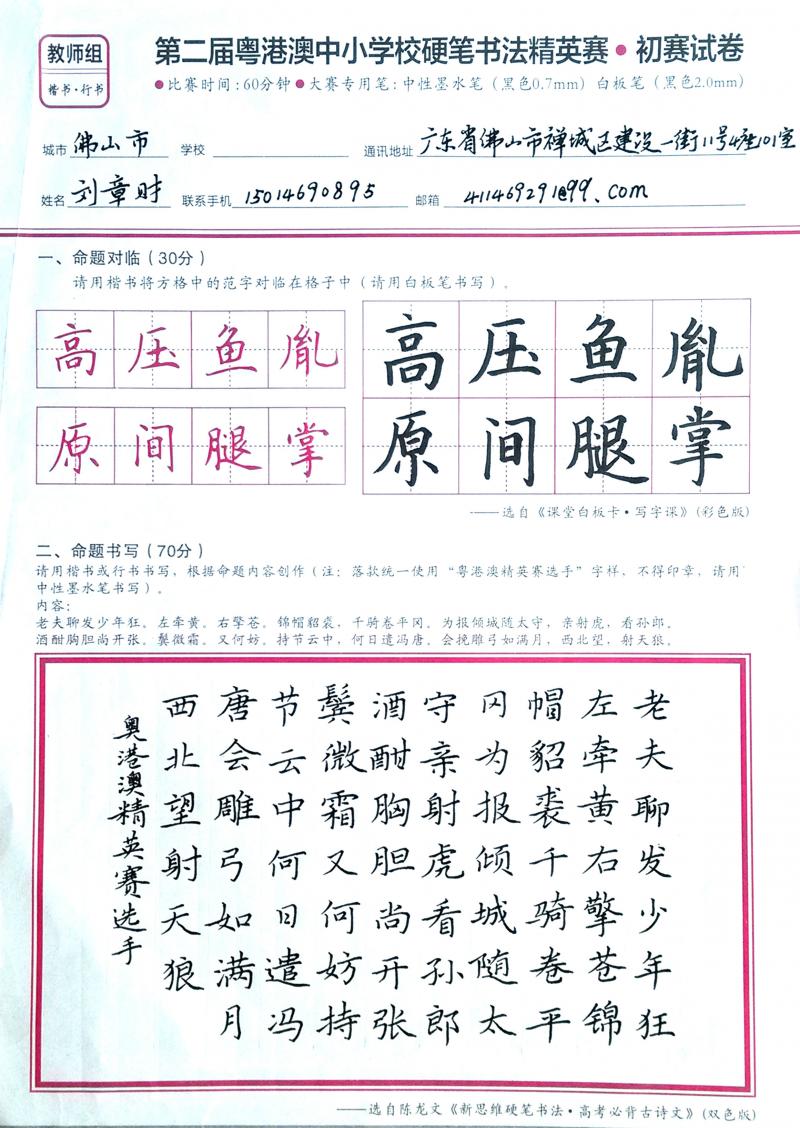 教师组
楷书·行书
第二届粤港澳中小学校硬笔书法精英赛·初赛试卷
●比赛时间:60分钟●大赛专用笔:中性墨水笔(黑色0.7mm) 白板笔(黑色2.0mm)
城市 佛山市 学校 通讯地址 广东省佛山市禅城区建设一街11号4座101室
姓名 刘章时 联系手机 15014690895 邮箱 411469291@99.com
一、命题对临(30分)
请用楷书将方格中的范字对临在格子中(请用白板笔书写)。
高压鱼胤
原间腿掌
高压鱼胤
原间腿掌
——选自《课堂白板卡·写字课》(彩色版)
二、命题书写(70分)
请用楷书或行书书写,根据命题内容创作(注:落款统一使用“粤港澳精英赛选手”字样,不得印章,请用
中性墨水笔书写)。
内容:
老夫聊发少年狂。左牵黄。右擎苍。锦帽貂裘,千骑卷平冈。为报倾城随太守,亲射虎,看孙郎。
酒酣胸胆尚开张。鬓微霜。又何妨。持节云中,何日遣冯唐。会挽雕弓如满月,西北望,射天狼。
老夫聊发少年狂
左牵黄右擎苍锦
帽貂裘千骑卷平
冈为报倾城随太
守亲射虎看孙郎
酒酣胸胆尚开张
鬓微霜又何妨持
节云中何日遣冯
唐会雕弓如满月
西北望射天狼
粤港澳精英赛选手
——选自陈龙文《新思维硬笔书法·高考必背古诗文》(双色版)